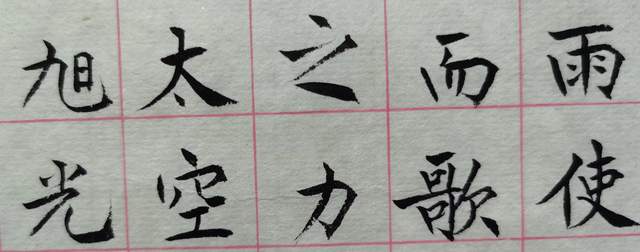 雨使
而歌
之力
太空
旭光